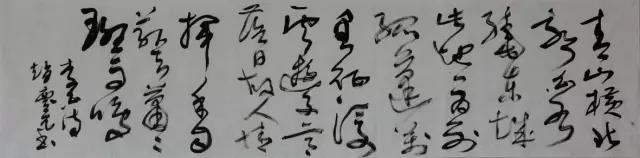 青山橫北
郭白水
繞東城
此地一為別
孤蓬萬
里征浮
雲遊子意
落日故人情
揮手自
茲去蕭〻
班馬鳴
李白詩